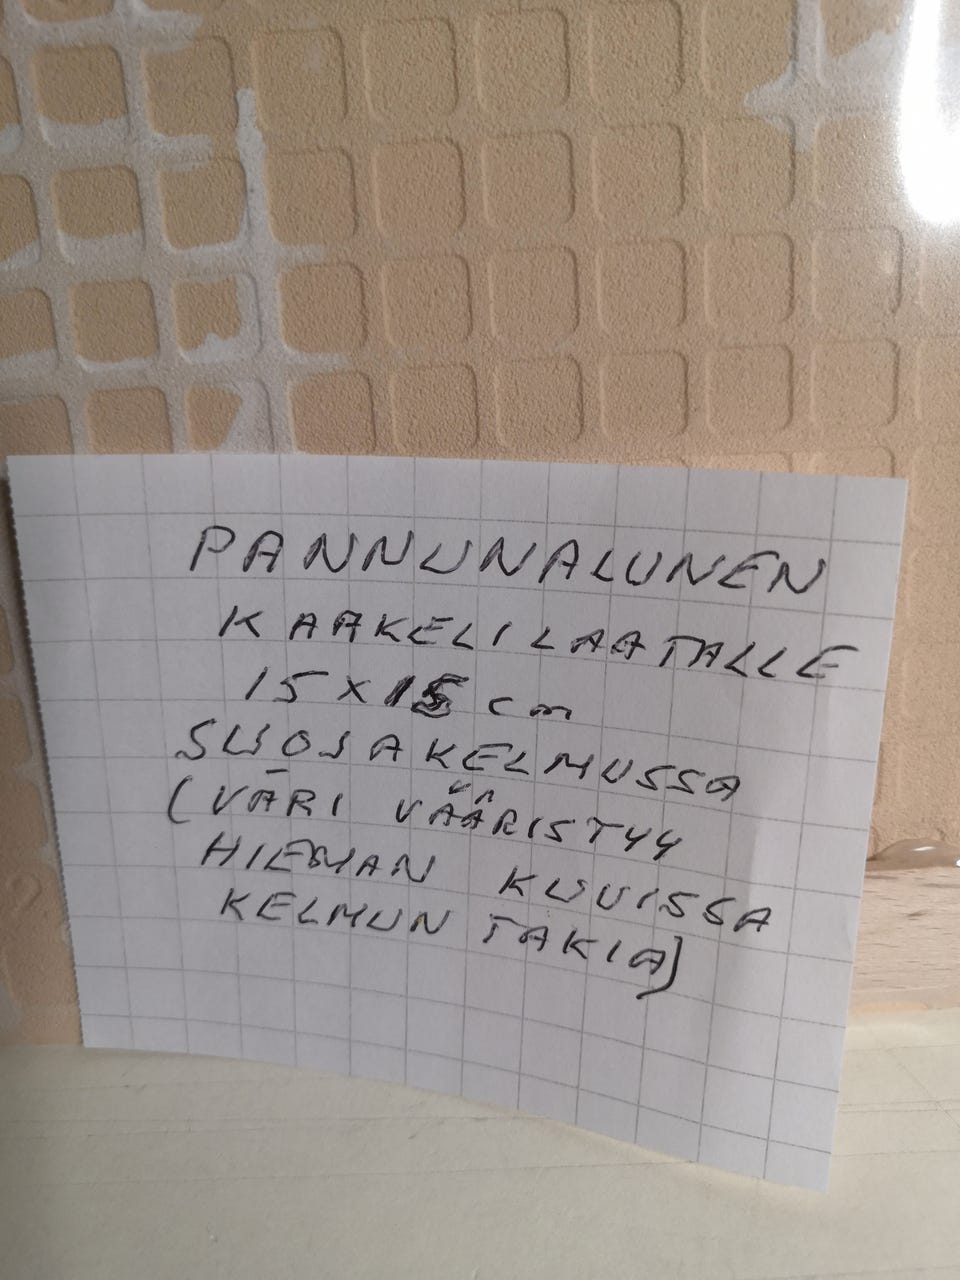 PANNUNALUNEN
KAAKELILAATALLE
15 x 15 cm
SUOJAKELMUSSA
(VÄRI VÄÄRISTYY
HIEMAN KUVISSA
KELMUN TAKIA)